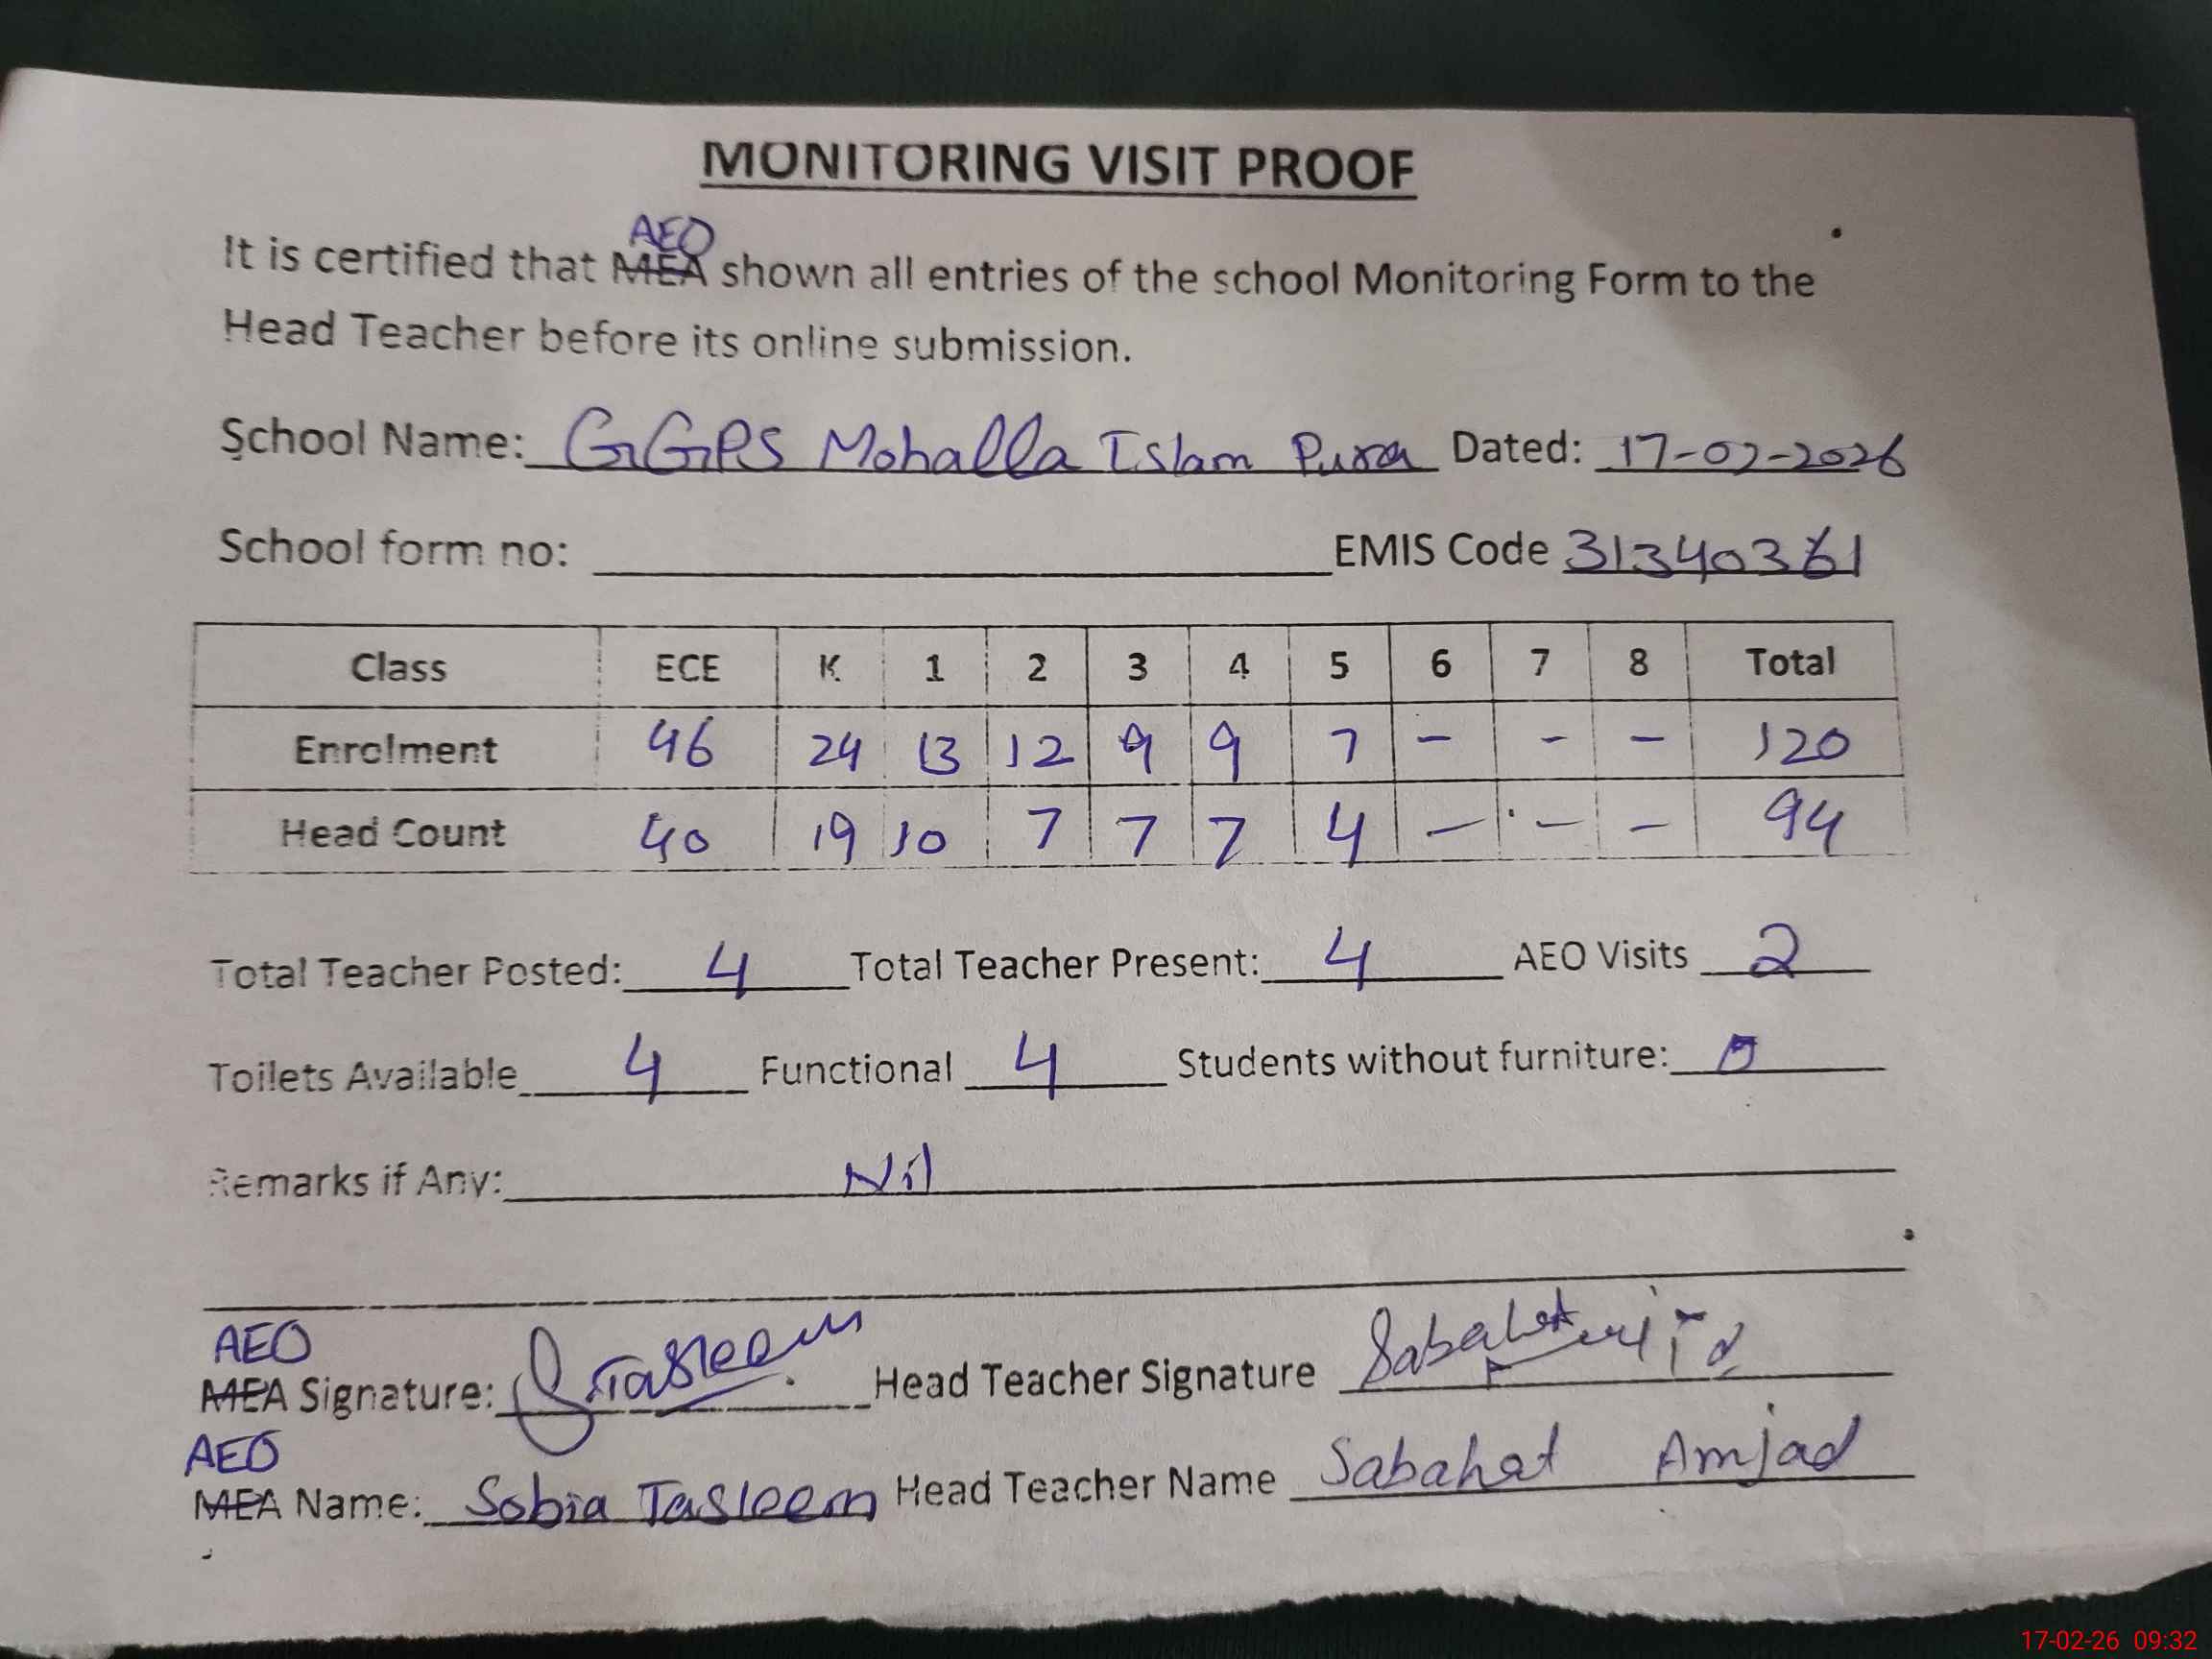 MONITORING VISIT PROOF
AEO
It is certified that MEA shown all entries of the school Monitoring Form to the
Head Teacher before its online submission.
School Name: GGPS Mohalla Islam Pura Dated: 17-02-2026
School form no: EMIS Code 31340361
Class ECE K 1 2 3 4 5 6 7 8 Total
Enrolment 46 24 13 12 9 9 7 - - - 120
Head Count 40 19 10 7 7 7 4 - - - 94
Total Teacher Posted: 4 Total Teacher Present: 4 AEO Visits 2
Toilets Available 4 Functional 4 Students without furniture: 0
Remarks if Any: Nil
AEO
MEA Signature: STasleem Head Teacher Signature Sabahat
AEO
MEA Name: Sobia Tasleem Head Teacher Name Sabahat Amjad
17-02-26 09:32